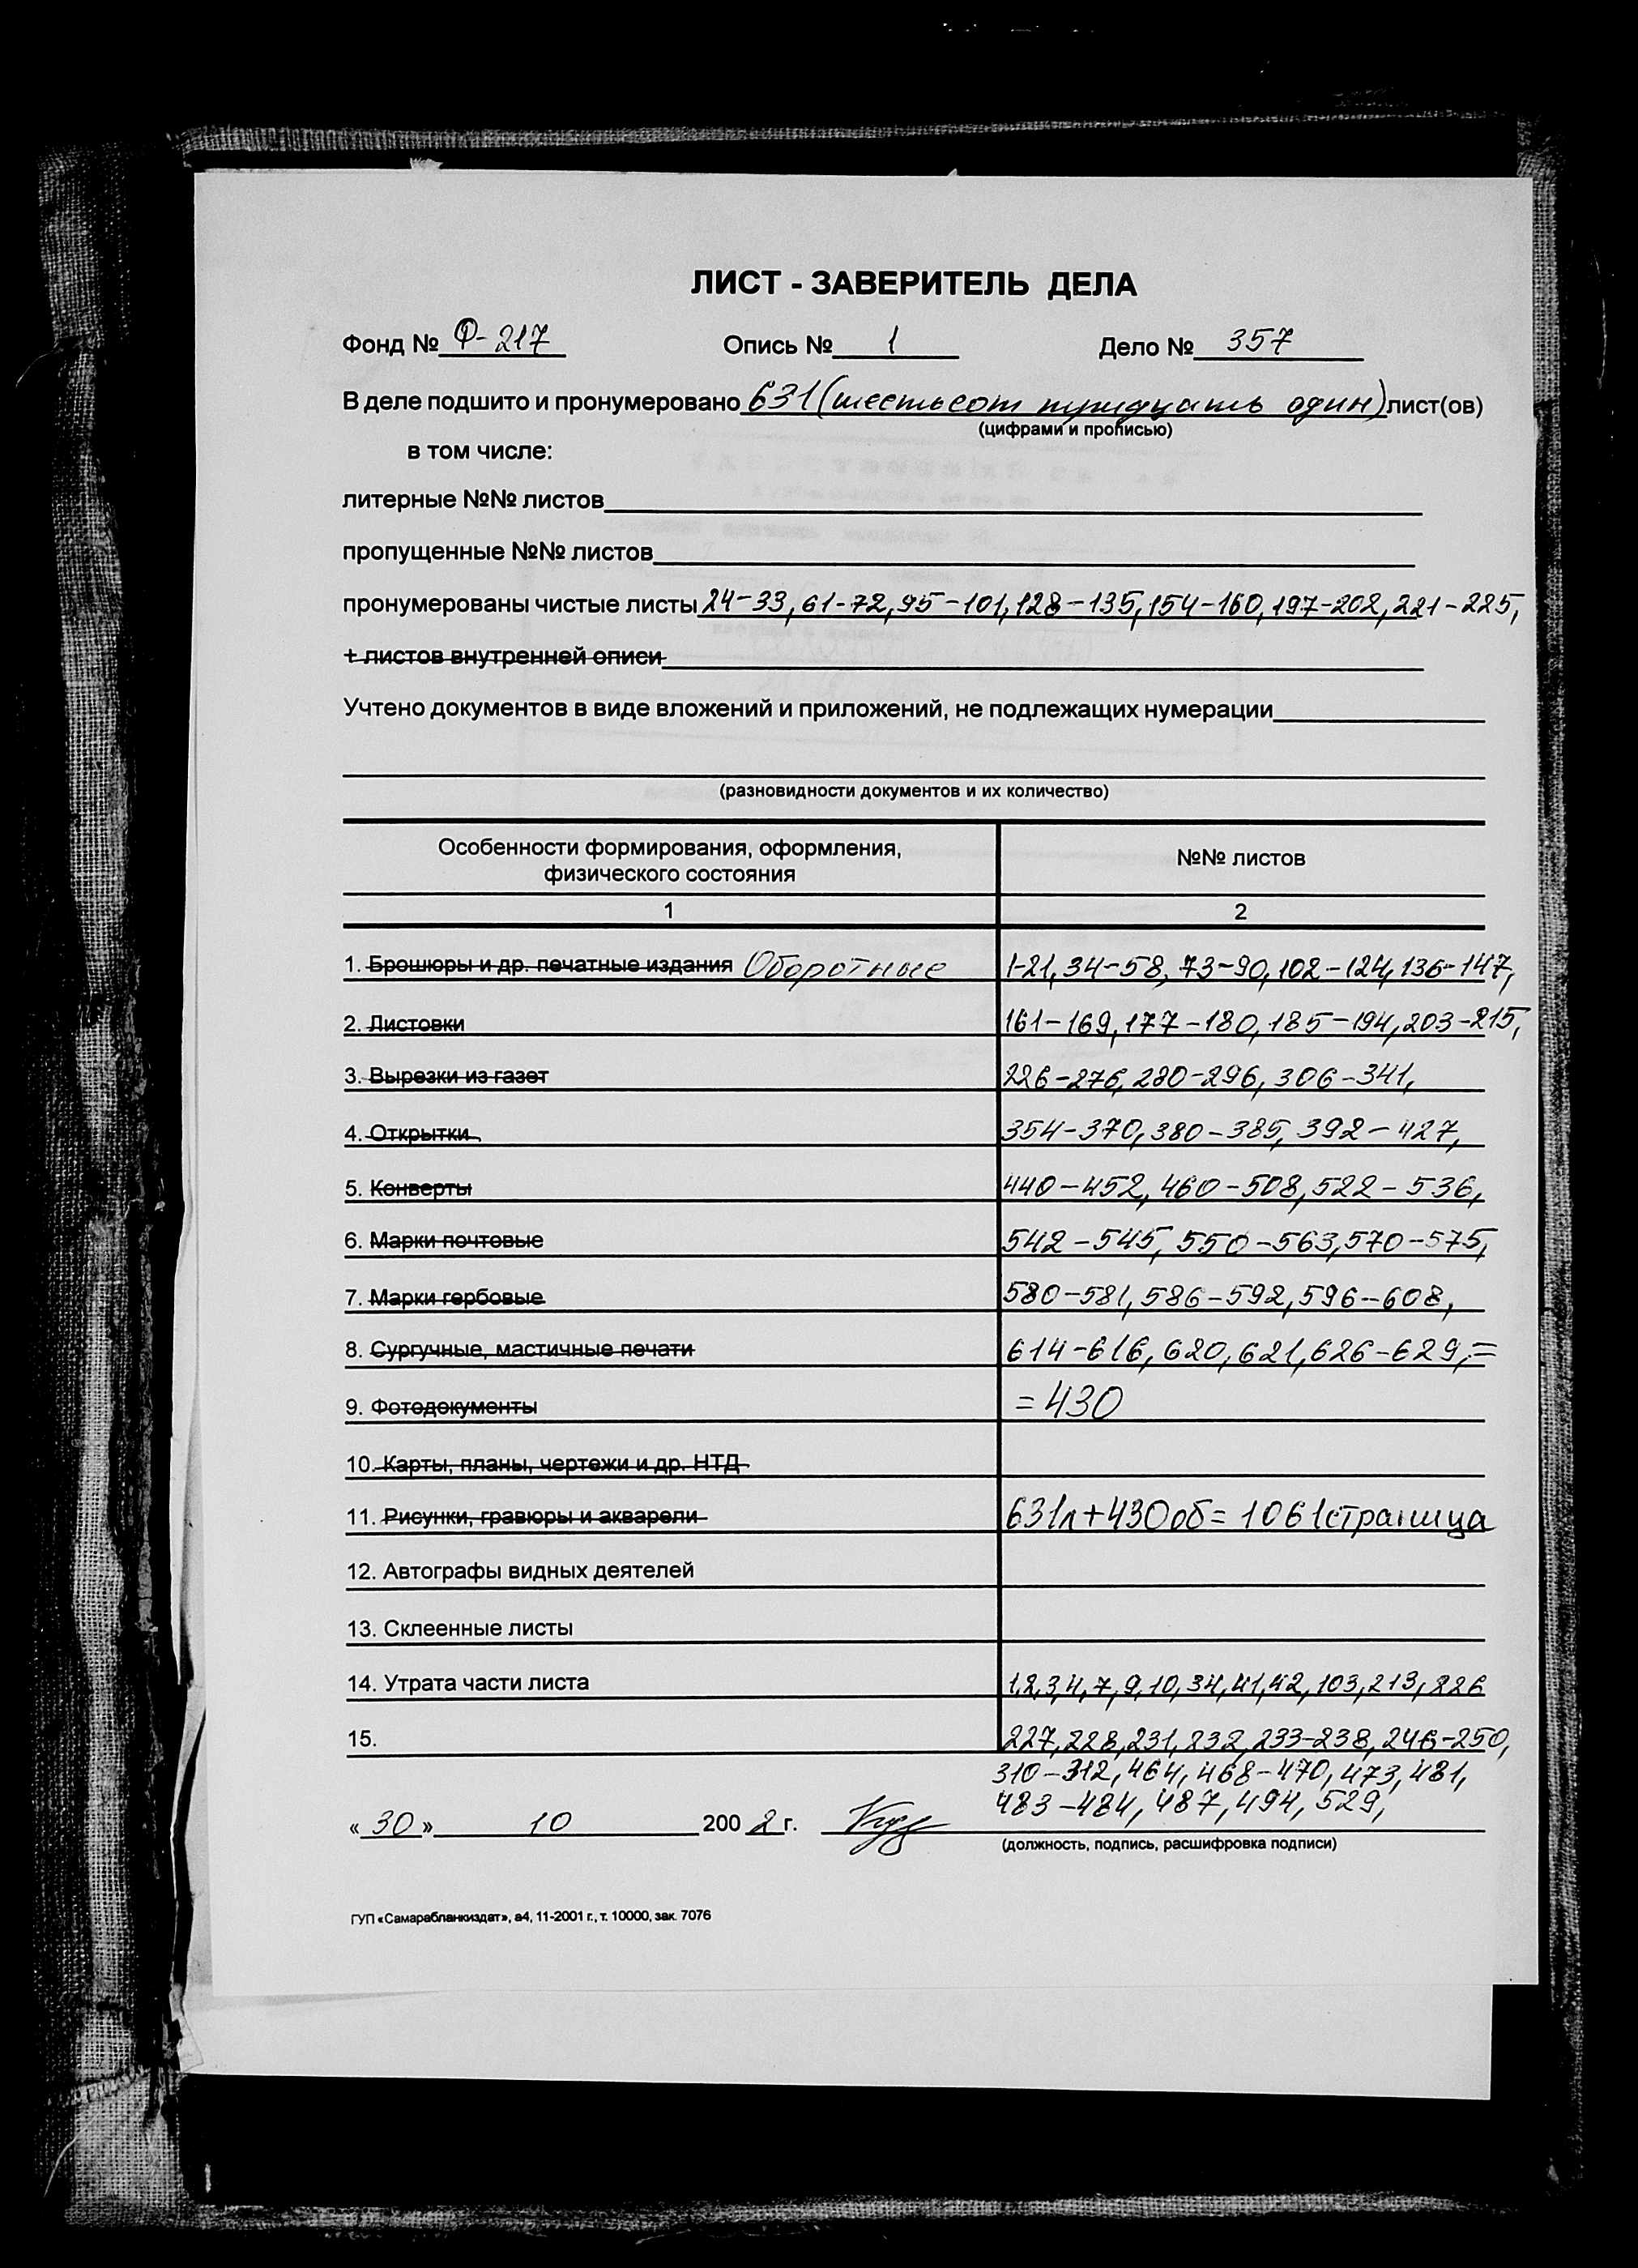 ЛИСТ - ЗАВЕРИТЕЛЬ ДЕЛА
Фонд № Ф-217 Опись № 1 Дело № 357
В деле подшито и пронумеровано 631 (шестьсот тридцать один) лист(ов)
(цифрами и прописью)
в том числе:
литерные №№ листов
пропущенные №№ листов
пронумерованы чистые листы 24-33, 61-72, 95-101, 128-135, 154-160, 197-202, 221-225,
+ листов внутренней описи
Учтено документов в виде вложений и приложений, не подлежащих нумерации
(разновидности документов и их количество)
Особенности формирования, оформления, физического состояния №№ листов
1 2
1. Брошюры и др. печатные издания Оборотные 1-21, 34-58, 73-90, 102-124, 136-147,
2. Листовки 161-169, 177-180, 185-194, 203-215,
3. Вырезки из газет 226-276, 280-296, 306-341,
4. Открытки 354-370, 380-385, 392-427,
5. Конверты 440-452, 460-508, 522-536,
6. Марки почтовые 542-545, 550-563, 570-575,
7. Марки гербовые 580-581, 586-592, 596-608,
8. Сургучные, мастичные печати 614-616, 620, 621, 626-629, =
9. Фотодокументы = 430
10. Карты, планы, чертежи и др. НТД
11. Рисунки, гравюры и акварели 631л+430об= 1061страница
12. Автографы видных деятелей
13. Склеенные листы
14. Утрата части листа 1,2,3,4,7,9,10,34,41,42,103,213,226
15. 227,228,231,232,233-238,246-250,
310-312,464,468-470,473,481,
483-484,487,494,529,
« 30 » 10 200 2 г.
(должность, подпись, расшифровка подписи)
ГУП «Самарабланкиздат», а4, 11-2001 г., т. 10000, зак. 7076